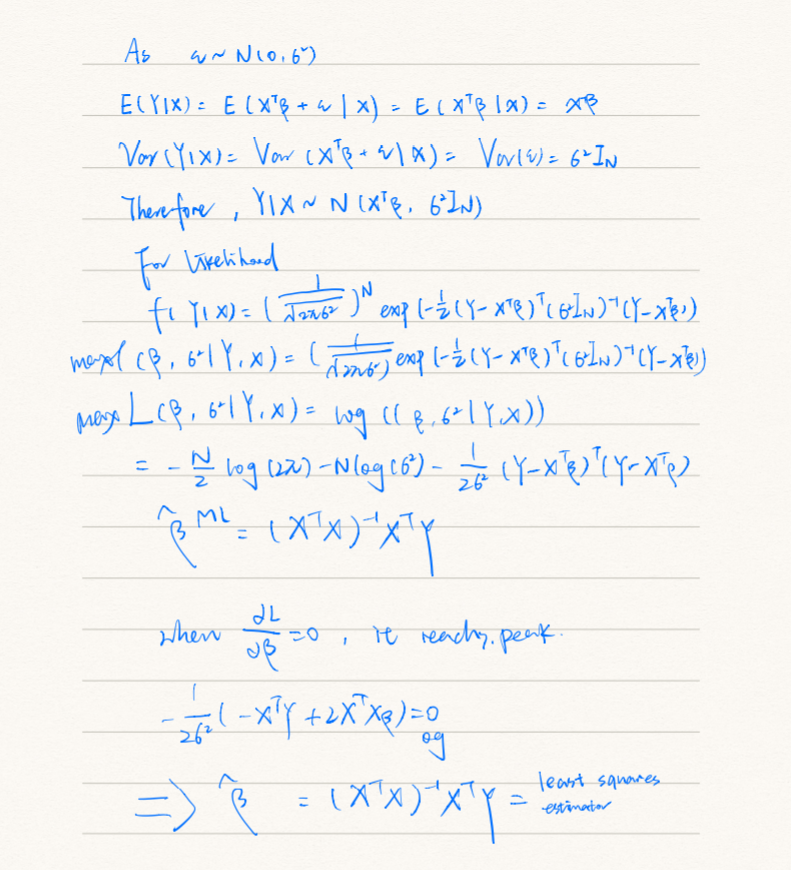 As ε ~ N(0, σ²)
E(Y|X) = E(XᵀΒ + ε | X) = E(Xᵀβ | X) = Xβ
Var(Y|X) = Var(Xᵀβ + ε | X) = Var(ε) = σ²I_N
Therefore, Y|X ~ N(Xᵀβ, σ²I_N)
For likelihood
f(Y|X) = (1/√2πσ²)^N exp(-½(Y-Xᵀβ)ᵀ(σ²I_N)⁻¹(Y-Xᵀβ))
max l(β, σ²|Y,X) = (1/√2πσ²) exp(-½(Y-Xᵀβ)ᵀ(σ²I_N)⁻¹(Y-Xᵀβ))
max L(β, σ²|Y,X) = log(l(β, σ²|Y,X))
= -N/2 log(2π) - N log(σ²) - 1/2σ² (Y-Xᵀβ)ᵀ(Y-Xᵀβ)
β̂^ML = (XᵀX)⁻¹XᵀY
when ∂L/∂β = 0, it reachs peak.
-1/2σ² (-XᵀY + 2XᵀXβ) = 0
⇒ β̂ = (XᵀX)⁻¹XᵀY = least squares
estimator